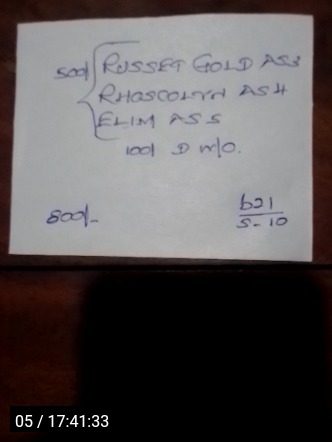 500/ { RUSSET GOLD AS3
RHOSCOLYN AS4
ELIM AS5
100/ D m/o.
800/-
b21
5-10
05 / 17:41:33